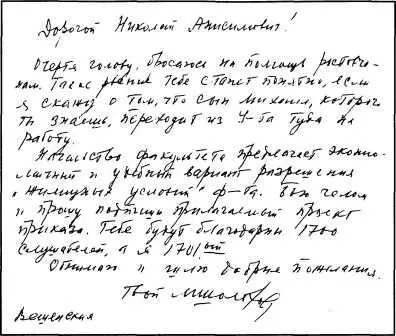 Дорогой Николай Анисимович!
Очертя голову, бросаюсь на помощь ростовча-
нам. Такое рвение тебе станет понятно, если
я скажу о том, что сын Михаил, которого
ты знаешь, переходит из У-та туда на
работу.
Начальство факультета предлагает эконо-
мичный и удобный вариант разрешения
"жилищных условий" ф-та. Бью челом
и прошу: подпиши прилагаемый проект
приказа. Тебе будут благодарны 1700
слушателей, а я 1701ый
Обнимаю и шлю добрые пожелания.
Твой М. Шолохов
Вешенская